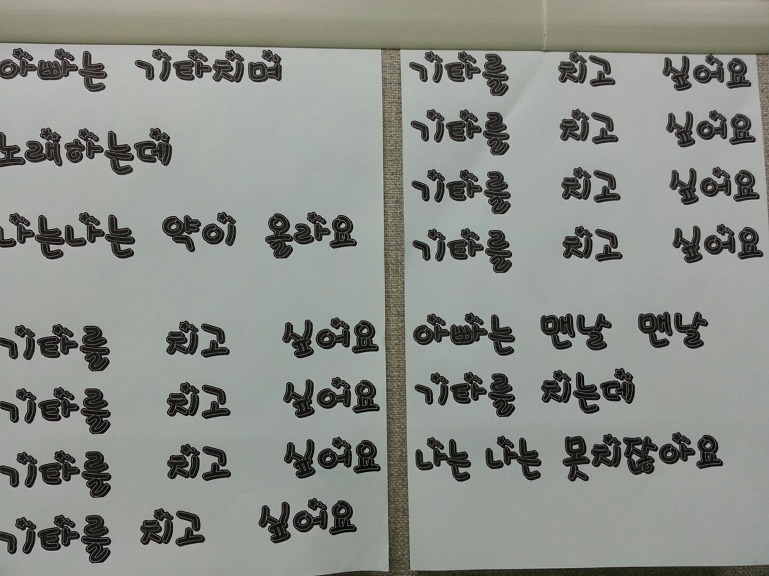 아빠는 기타치며
노래하는데
나는나는 약이 올라요
기타를 치고 싶어요
기타를 치고 싶어요
기타를 치고 싶어요
기타를 치고 싶어요
기타를 치고 싶어요
기타를 치고 싶어요
기타를 치고 싶어요
기타를 치고 싶어요
아빠는 맨날 맨날
기타를 치는데
나는 나는 못치잖아요